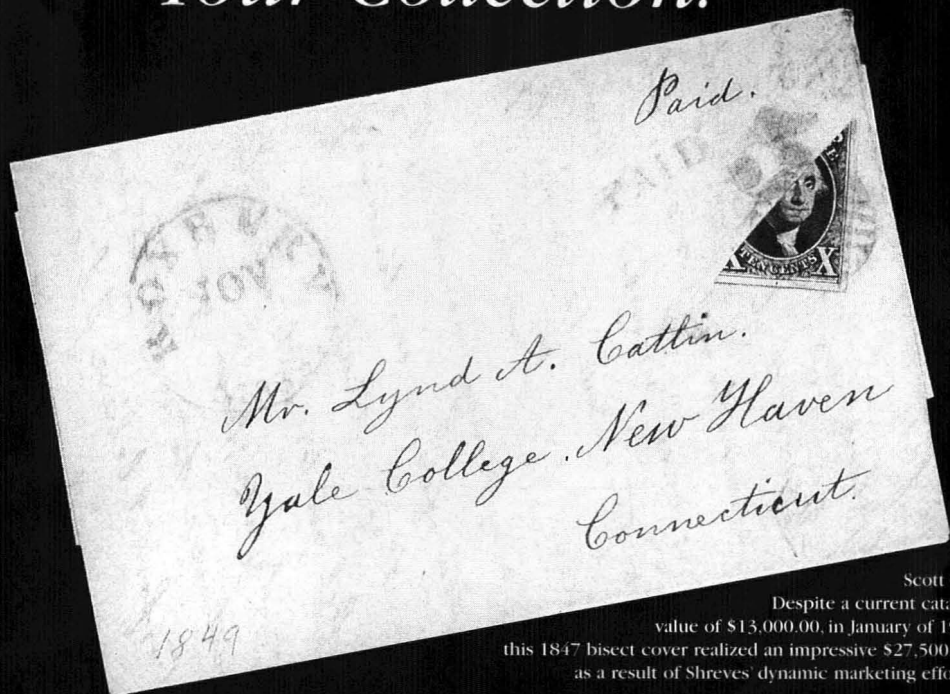 Your Collection.
Paid.
PAID
ROXBURY
NOV
TEN CENTS
X X
Mr. Lynd A. Catlin.
Yale College. New Haven
Connecticut.
1849
Scott
Despite a current
value of $13,000.00, in January of
this 1847 bisect cover realized an impressive $27,500
as a result of Shreves' dynamic marketing